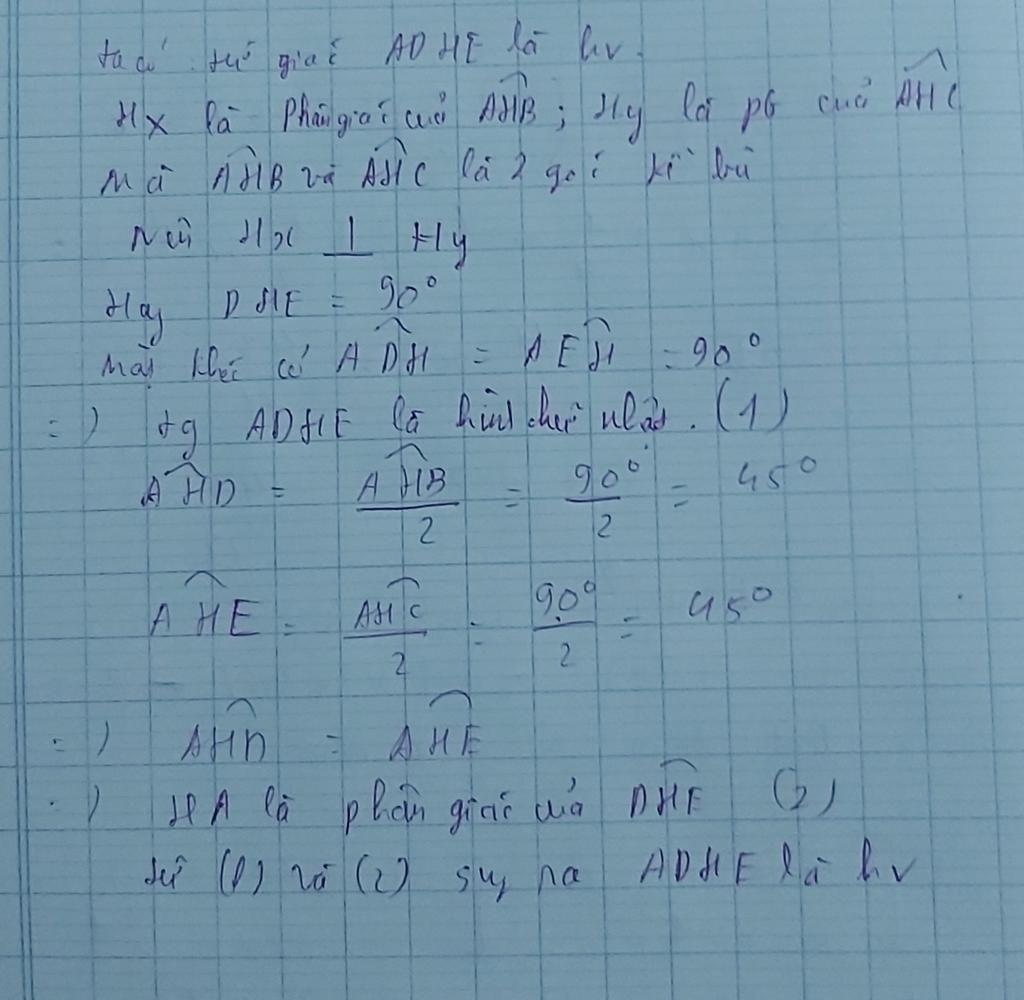 ta có tứ giác ADHE là hv.
Hx là Phân giác của AHB; Hy là pg của AHC
Mà AHB và AHC là 2 góc kề bù
Nên Hx ⊥ Hy
Hay DHE = 90°
Mặt khác có ADH = AEH = 90°
=) tg ADHE là hình chữ nhật. (1)
AHD = AHB/2 = 90°/2 = 45°
AHE = AHC/2 = 90°/2 = 45°
=) AHD = AHE
=) HA là phân giác của DHE (2)
từ (1) và (2) suy ra ADHE là hv